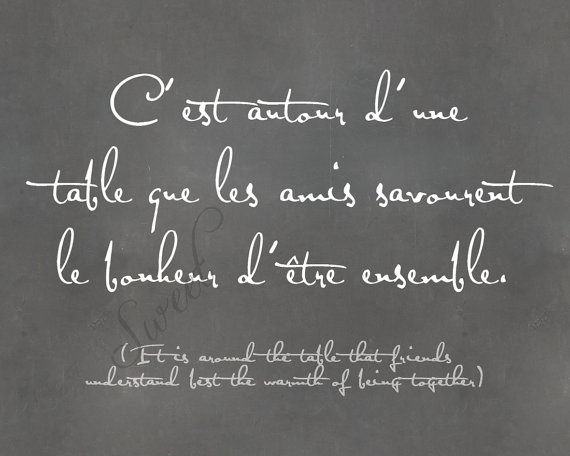 C'est autour d'une
table que les amis savourent
le bonheur d'être ensemble.
Sweet
(It is around the table that friends
understand best the warmth of being together)